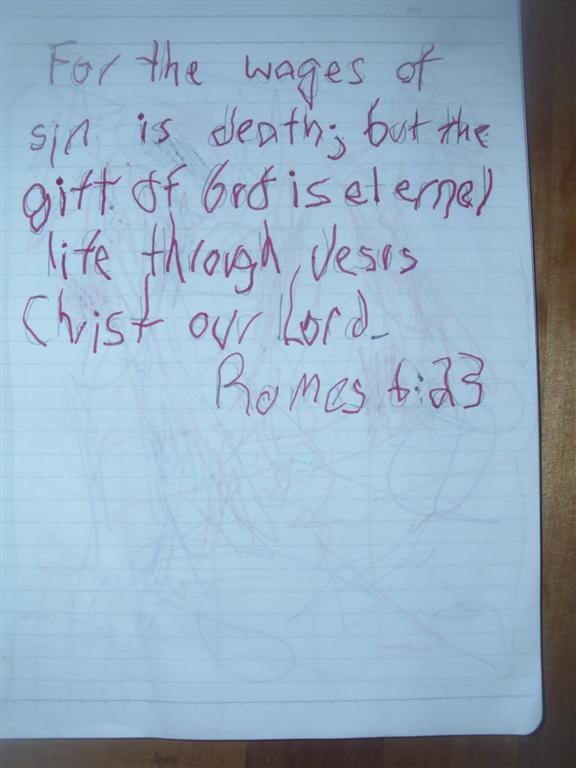 For the wages of
sin is death; but the
gift of God is eternel
life through Jesus
Christ our Lord.
Romes 6:23